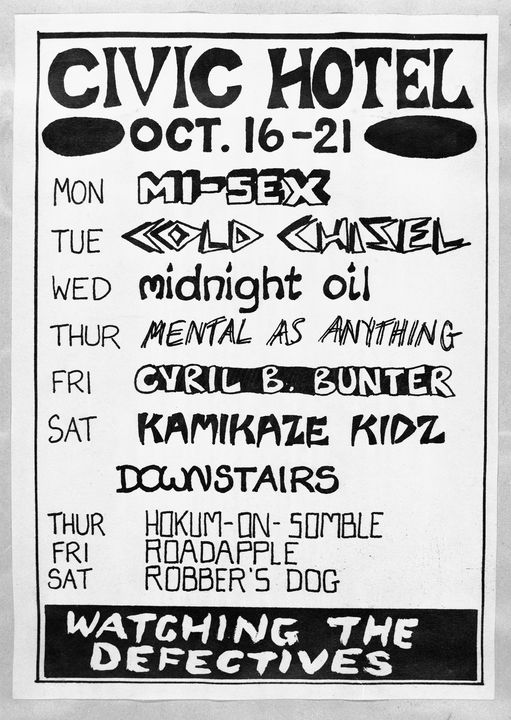 CIVIC HOTEL
OCT. 16-21
MON MI-SEX
TUE COLD CHISEL
WED midnight oil
THUR MENTAL AS ANYTHING
FRI CYRIL B. BUNTER
SAT KAMIKAZE KIDZ
DOWNSTAIRS
THUR HOKUM-ON-SOMBLE
FRI ROADAPPLE
SAT ROBBER'S DOG
WATCHING THE
DEFECTIVES